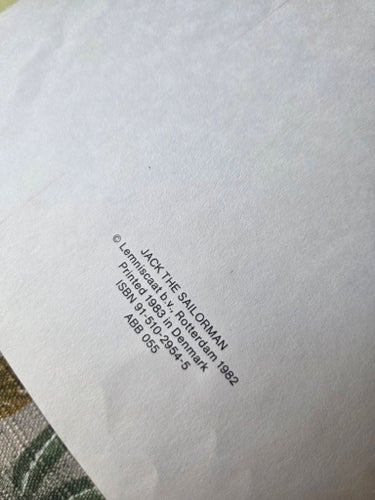 JACK THE SAILORMAN
© Lemniscaat b.v., Rotterdam 1982
Printed 1983 in Denmark
ISBN 91-510-2954-5
ABB 055